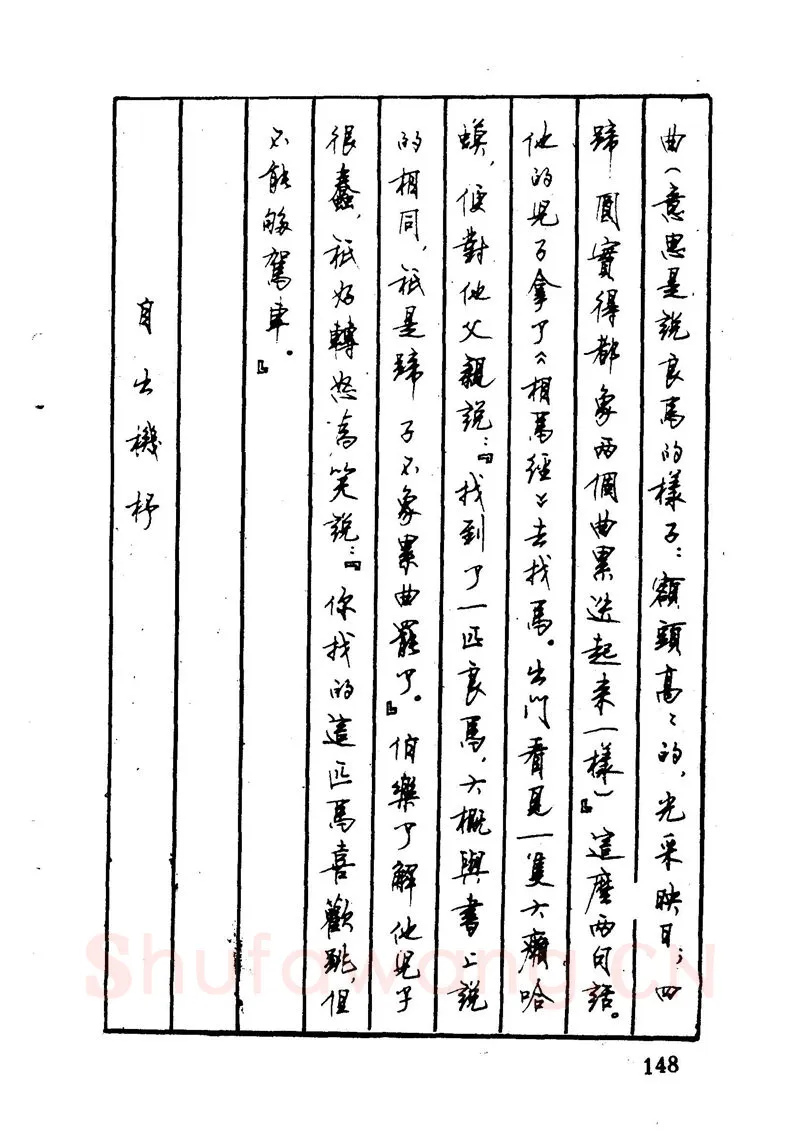 曲（意思是說良馬的樣子：額頭高〻的，光采映日；四
蹄圓實得都象兩個曲累迭起来一樣）』這麼兩句話。
他的兒子拿了《相馬經》去找馬。出門看見一隻大癩哈
蟆，便對他父親說：『找到了一匹良馬，大概與書上說
的相同，祇是蹄子不象累曲罷了。』伯樂了解他兒子
很蠢，祇好轉怒為笑說：『你找的這匹馬喜歡跳，但
不能够駕車。』
自出機杼
148
Shufawang.CN